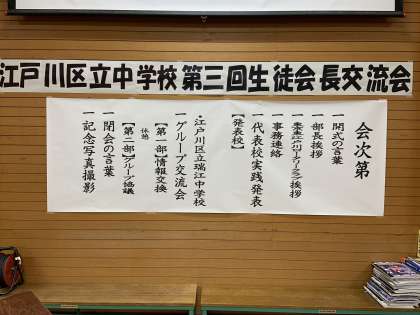 江戸川区立中学校第三回生徒会長交流会
会次第
一開式の言葉
一部長挨拶
一東東京江戸川ロータリークラブ挨拶
一事務連絡
一代表校実践発表
【発表校】
・江戸川区立瑞江中学校
一グループ交流会
【第一部】情報交換
休憩
【第二部】グループ協議
一閉会の言葉
一記念写真撮影